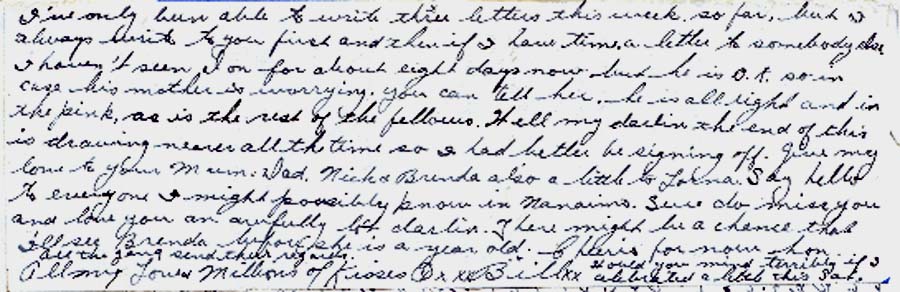 I've only been able to write three letters this week, so far, but I
always write to you first and then if I have time, a letter to somebody else
I haven't seen for about eight days now but he is O.K. so in
case his mother is worrying, you can tell her, he is all right and in
the pink, as is the rest of the fellows. Well my darlin the end of this
is drawing nearer all the time so I had better be signing off. Give my
love to your Mum. Dad. Nick & Brenda also a little to Lorna. Say hello
to everyone I might possibly know in Nanaimo. Sure do miss you
and love you an awfully lot darlin. There might be a chance that
I'll see Brenda before she is a year old. Cheerio for now hon
All the gang send their regards.
All my Love & Millions of Kisses xxx Bill xx
Would you mind terribly if I
celebrated a little this Sat.